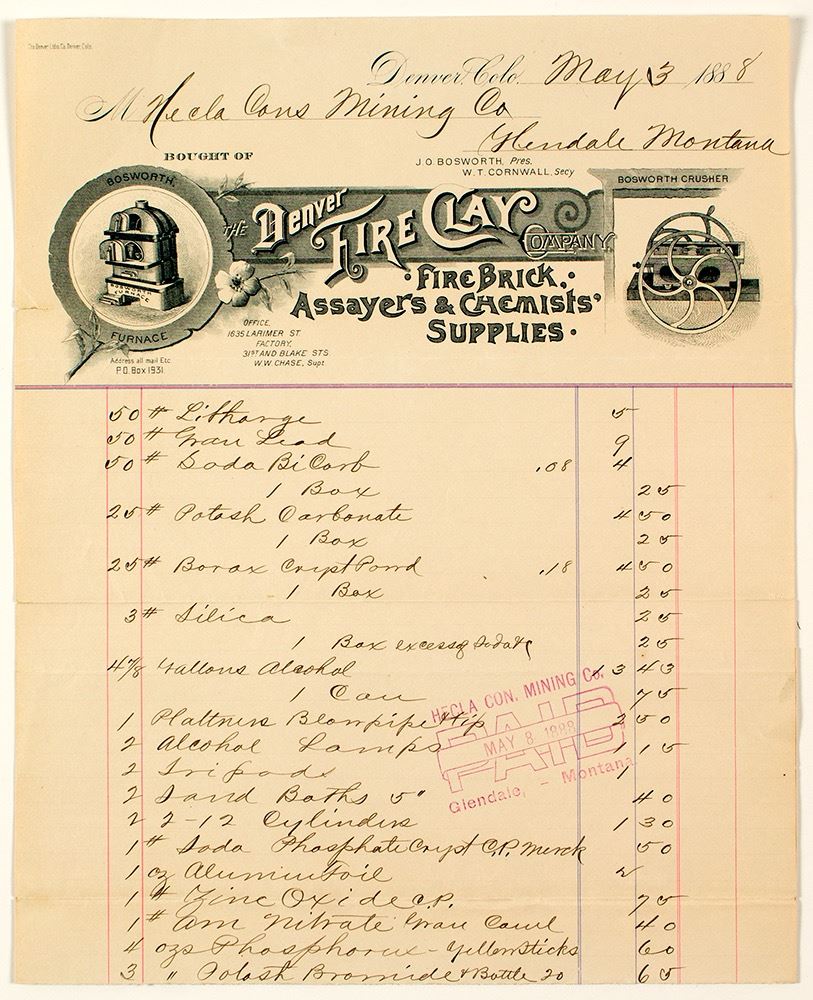 The Denver Litho. Co. Denver, Colo.
Denver, Colo. May 3 1888
M Hecla Cons Mining Co
Glendale Montana
BOUGHT OF
J. O. BOSWORTH, Pres.
W. T. CORNWALL, Secy
BOSWORTH
FURNACE
BOSWORTH FURNACE
BOSWORTH CRUSHER
THE Denver FIRE CLAY COMPANY
FIRE BRICK,
ASSAYERS & CHEMISTS'
SUPPLIES
OFFICE,
1635 LARIMER ST.
FACTORY,
31ST AND BLAKE STS.
W.W. CHASE, Supt
Address all mail Etc
P.O. Box 1931.
50 # Litharge 5
50 # Gran Lead 9
50 # Soda Bi Carb .08 4
1 Box 25
25 # Potash Carbonate 4 50
1 Box 25
25 # Borax Cryst Powd .18 4 50
1 Box 25
3 # Silica 25
1 Box excess of Soda 25
4 7/8 Gallons Alcohol 13 43
1 Can 75
1 Plattners Blowpipe Tip 2 50
2 Alcohol Lamps 1 15
2 Tripods 1
2 Sand Baths 5" 40
2 2-12 Cylinders 1 30
1 # Soda Phosphate Cryst C.P. Merck 50
1 oz Aluminum Foil 2
1 # Zinc Oxide C.P. 75
1 # Am Nitrate Gran Coml 40
4 ozs Phosphorus - Yellow Sticks 60
3 " Potash Bromide & Bottle 20 65
HECLA CON. MINING Co.
PAID
MAY 8 1888
Glendale, - Montana